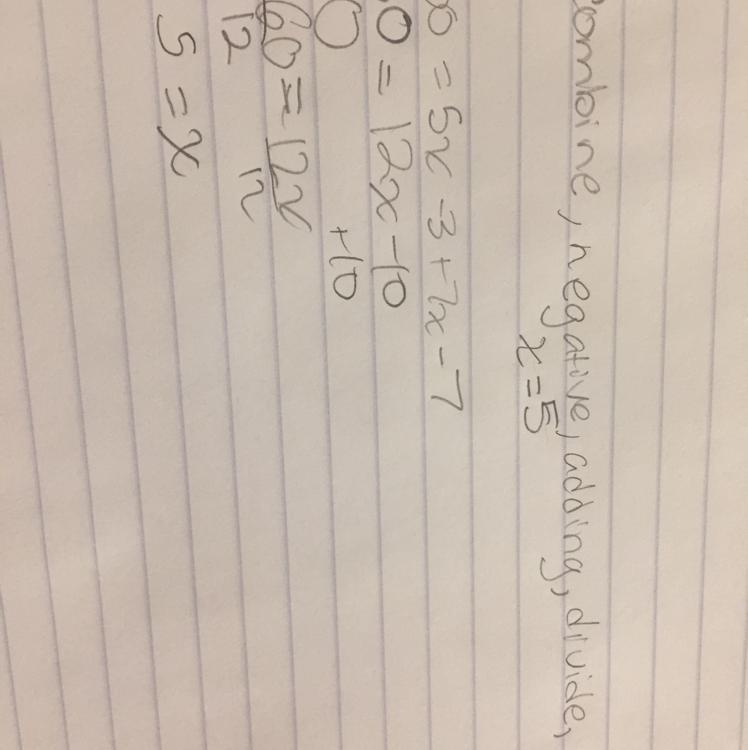 combine, negative, adding, divide,
x = 5
0 = 5x - 3 + 7x - 7
0 = 12x - 10
0 +10
60 = 12x
12 12
5 = x